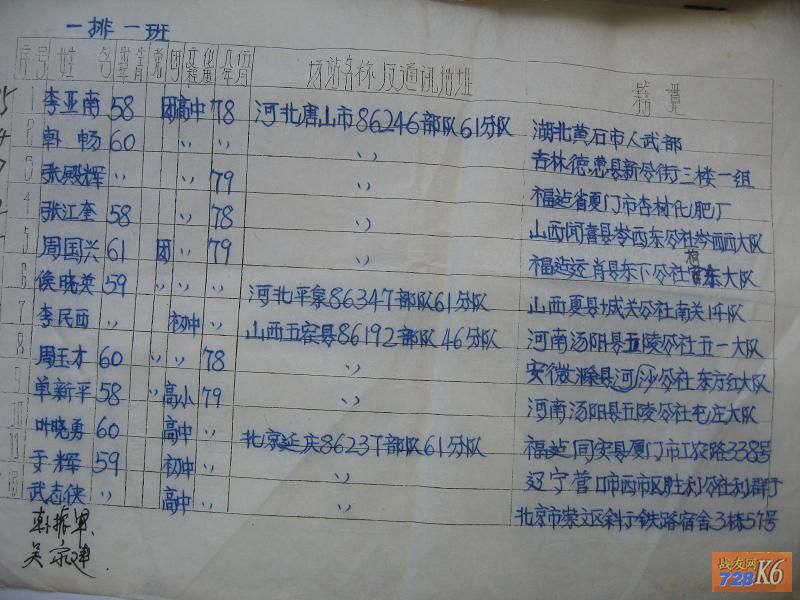 一排一班
序号 姓名 出生年月 党 团 文化程度 入伍年月 场站名称及通讯地址 籍贯
1 李亚南 58 团 高中 78 河北唐山市86246部队61分队 湖北黄石市人武部
2 韩畅 60 〃 〃 吉林德惠县新谷街三楼一组
3 张殿辉 〃 〃 79 〃 福建省厦门市杏林化肥厂
4 张江奎 58 〃 78 〃 山西闻喜县岺西东公社岺西西大队
5 周国兴 61 团 〃 79 〃 福建云肖县东下公社东大队
6 侯晓英 59 〃 〃 河北平泉86347部队61分队 山西夏县城关公社南关1队
7 李民西 〃 初中 〃 山西五寨县86192部队46分队 河南汤阴县五陵公社五一大队
8 周玉才 60 〃 〃 78 安徽滁县河沙公社东方红大队
9 单新平 58 〃 高小 79 河南汤阴县五陵公社屯庄大队
10 叶晓勇 60 高中 〃 北京延庆86237部队61分队 福建同安县厦门市工农路338号
11 于辉 59 初中 〃 〃 辽宁营口市西市区胜利公社利群
武志侠 〃 高中 〃 〃 北京市崇文区斜街铁路宿舍3栋57号
韩振军
吴京建
战友网
728K6